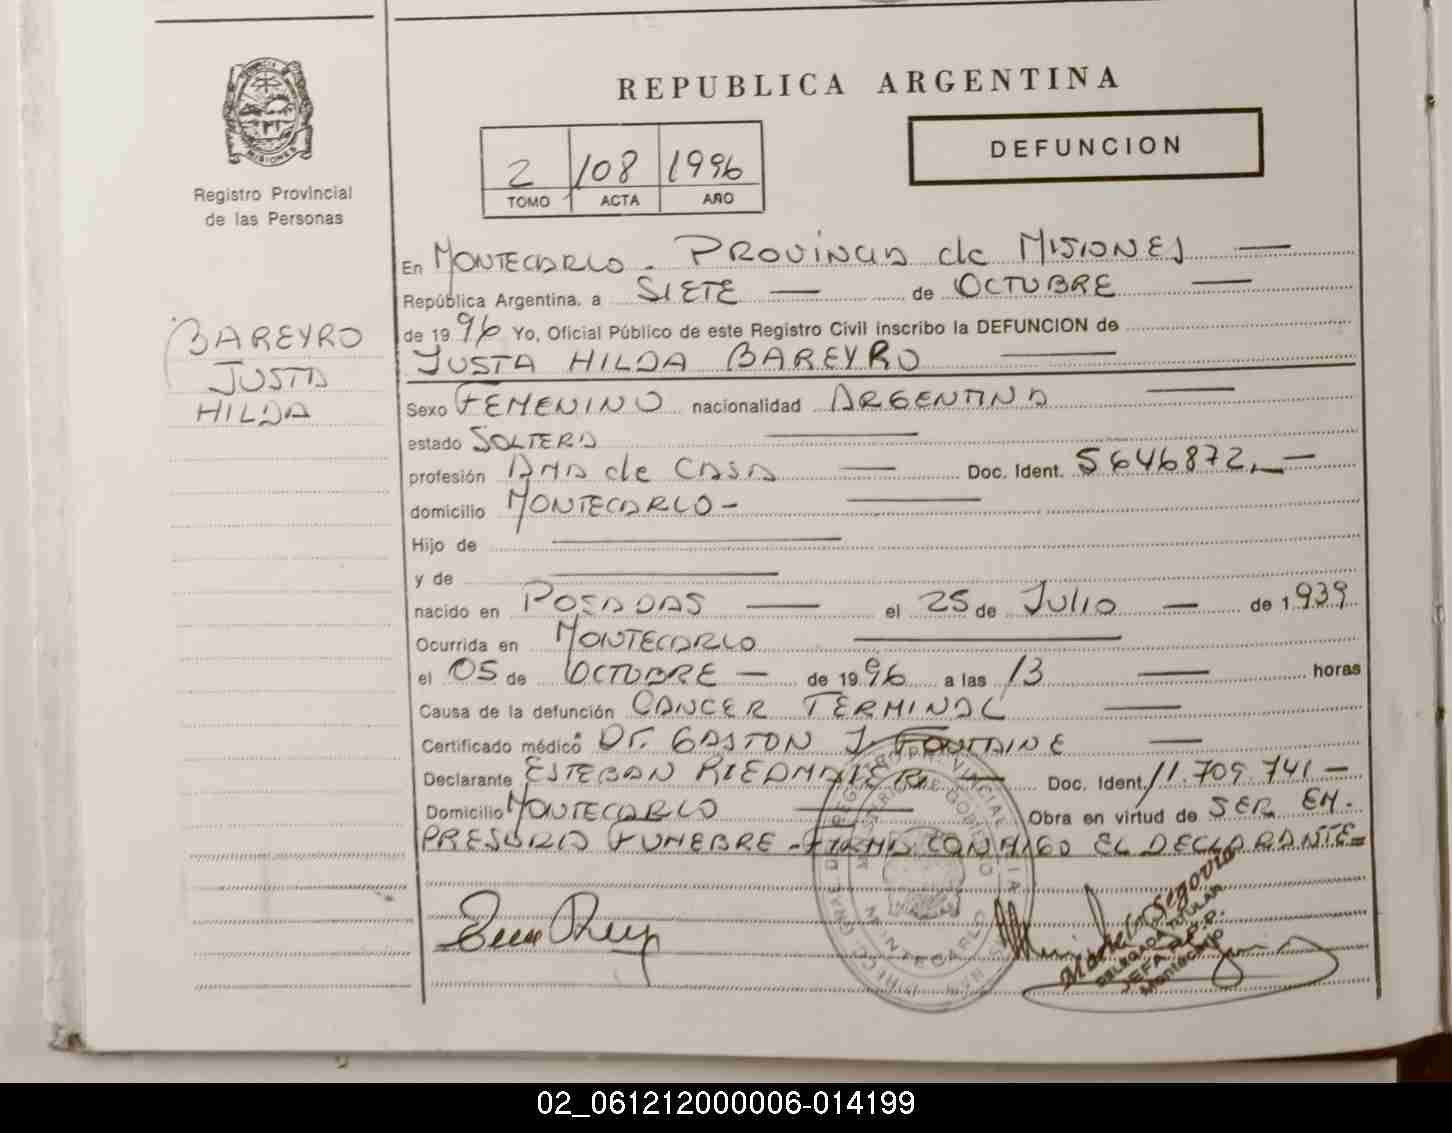 REPUBLICA ARGENTINA
DEFUNCION
2 108 1996
TOMO ACTA AÑO
PROVINCIA DE
MISIONES
Registro Provincial
de las Personas
BAREYRO
JUSTA
HILDA
En MONTECARLO - PROVINCIA de MISIONES
República Argentina, a SIETE de OCTUBRE
de 1996 Yo, Oficial Público de este Registro Civil inscribo la DEFUNCION de
JUSTA HILDA BAREYRO
Sexo FEMENINO nacionalidad ARGENTINA
estado SOLTERA
profesión AMA de CASA Doc. Ident. 5646872.-
domicilio MONTECARLO-
Hijo de
y de
nacido en POSADAS el 25 de JULIO de 1.939
Ocurrida en MONTECARLO
el 05 de OCTUBRE - de 1996 a las 13 horas
Causa de la defunción CANCER TERMINAL
Certificado médico DR. GASTON J. FONTAINE
Declarante ESTEBAN RIEDMAIER Doc. Ident. 11.709.741-
Domicilio MONTECARLO Obra en virtud de SER EM-
PRESARIO FUNEBRE - FIRMA CONMIGO EL DECLARANTE=
MINISTERIO DE GOBIERNO
MONTECARLO
Segovia
DELEGADA TITULAR
JEFA
Montecarlo
02_061212000006-014199